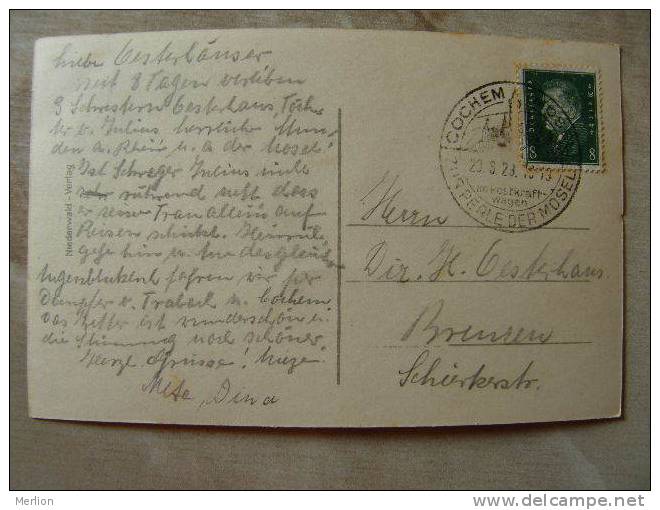 Liebe Oesterhäuser
seit 8 Tagen verleben
3 Schwestern Oesterhaus, Toch-
ter v. Julius herrliche Stun-
den a. Rhein u. a der Mosel!
Ist Schwager Julius nicht
rührend nett dass
er seine Frau allein auf
Reisen schickt.
gehe hin u. tue desgleich
Augenblicklich fahren wir per
Dampfer v. Trabach n. Cochem
das Wetter ist wunderschön u.
die Stimmung noch schöner.
Herzl. Grüsse!
Meta, Dina
Niederwald - Verlag
COCHEM
ZUR PERLE DER MOSEL
im Postkraft-
wagen
8 8
Herrn
Dir. H. Oesterhaus
Bremen
Schierkerstr.
Merlion
http://www.delcampe.net